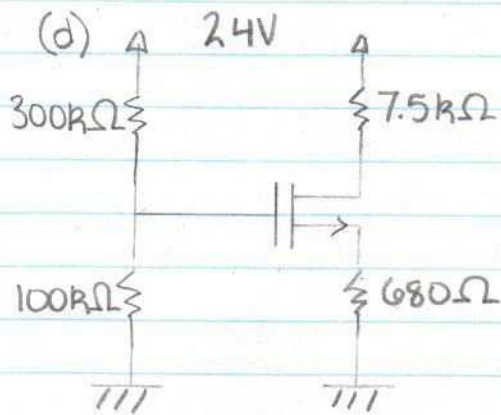 (d) 24V
300kΩ 7.5kΩ
100kΩ 680Ω